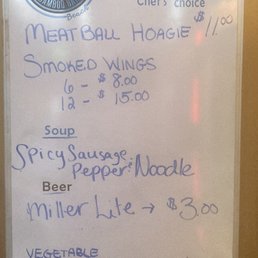 Beac
Chef's Choice
MEATBALL HOAGIE $11.00
SMOKED WINGS
6 - $8.00
12 - $15.00
Soup
Spicy Sausage,
Pepper & Noodle
Beer
Miller Lite → $3.00
VEGETABLE